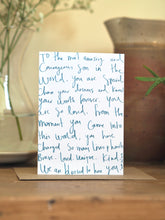 To the most amazing and
Courageous son in the
World. you are Special.
have your dreams and know
your worth forever. your
are so loved. From the
moment you Came into
this world, you have
changed So many loving hearts.
Brave. loved. unique. Kind.
We are blessed to have you.